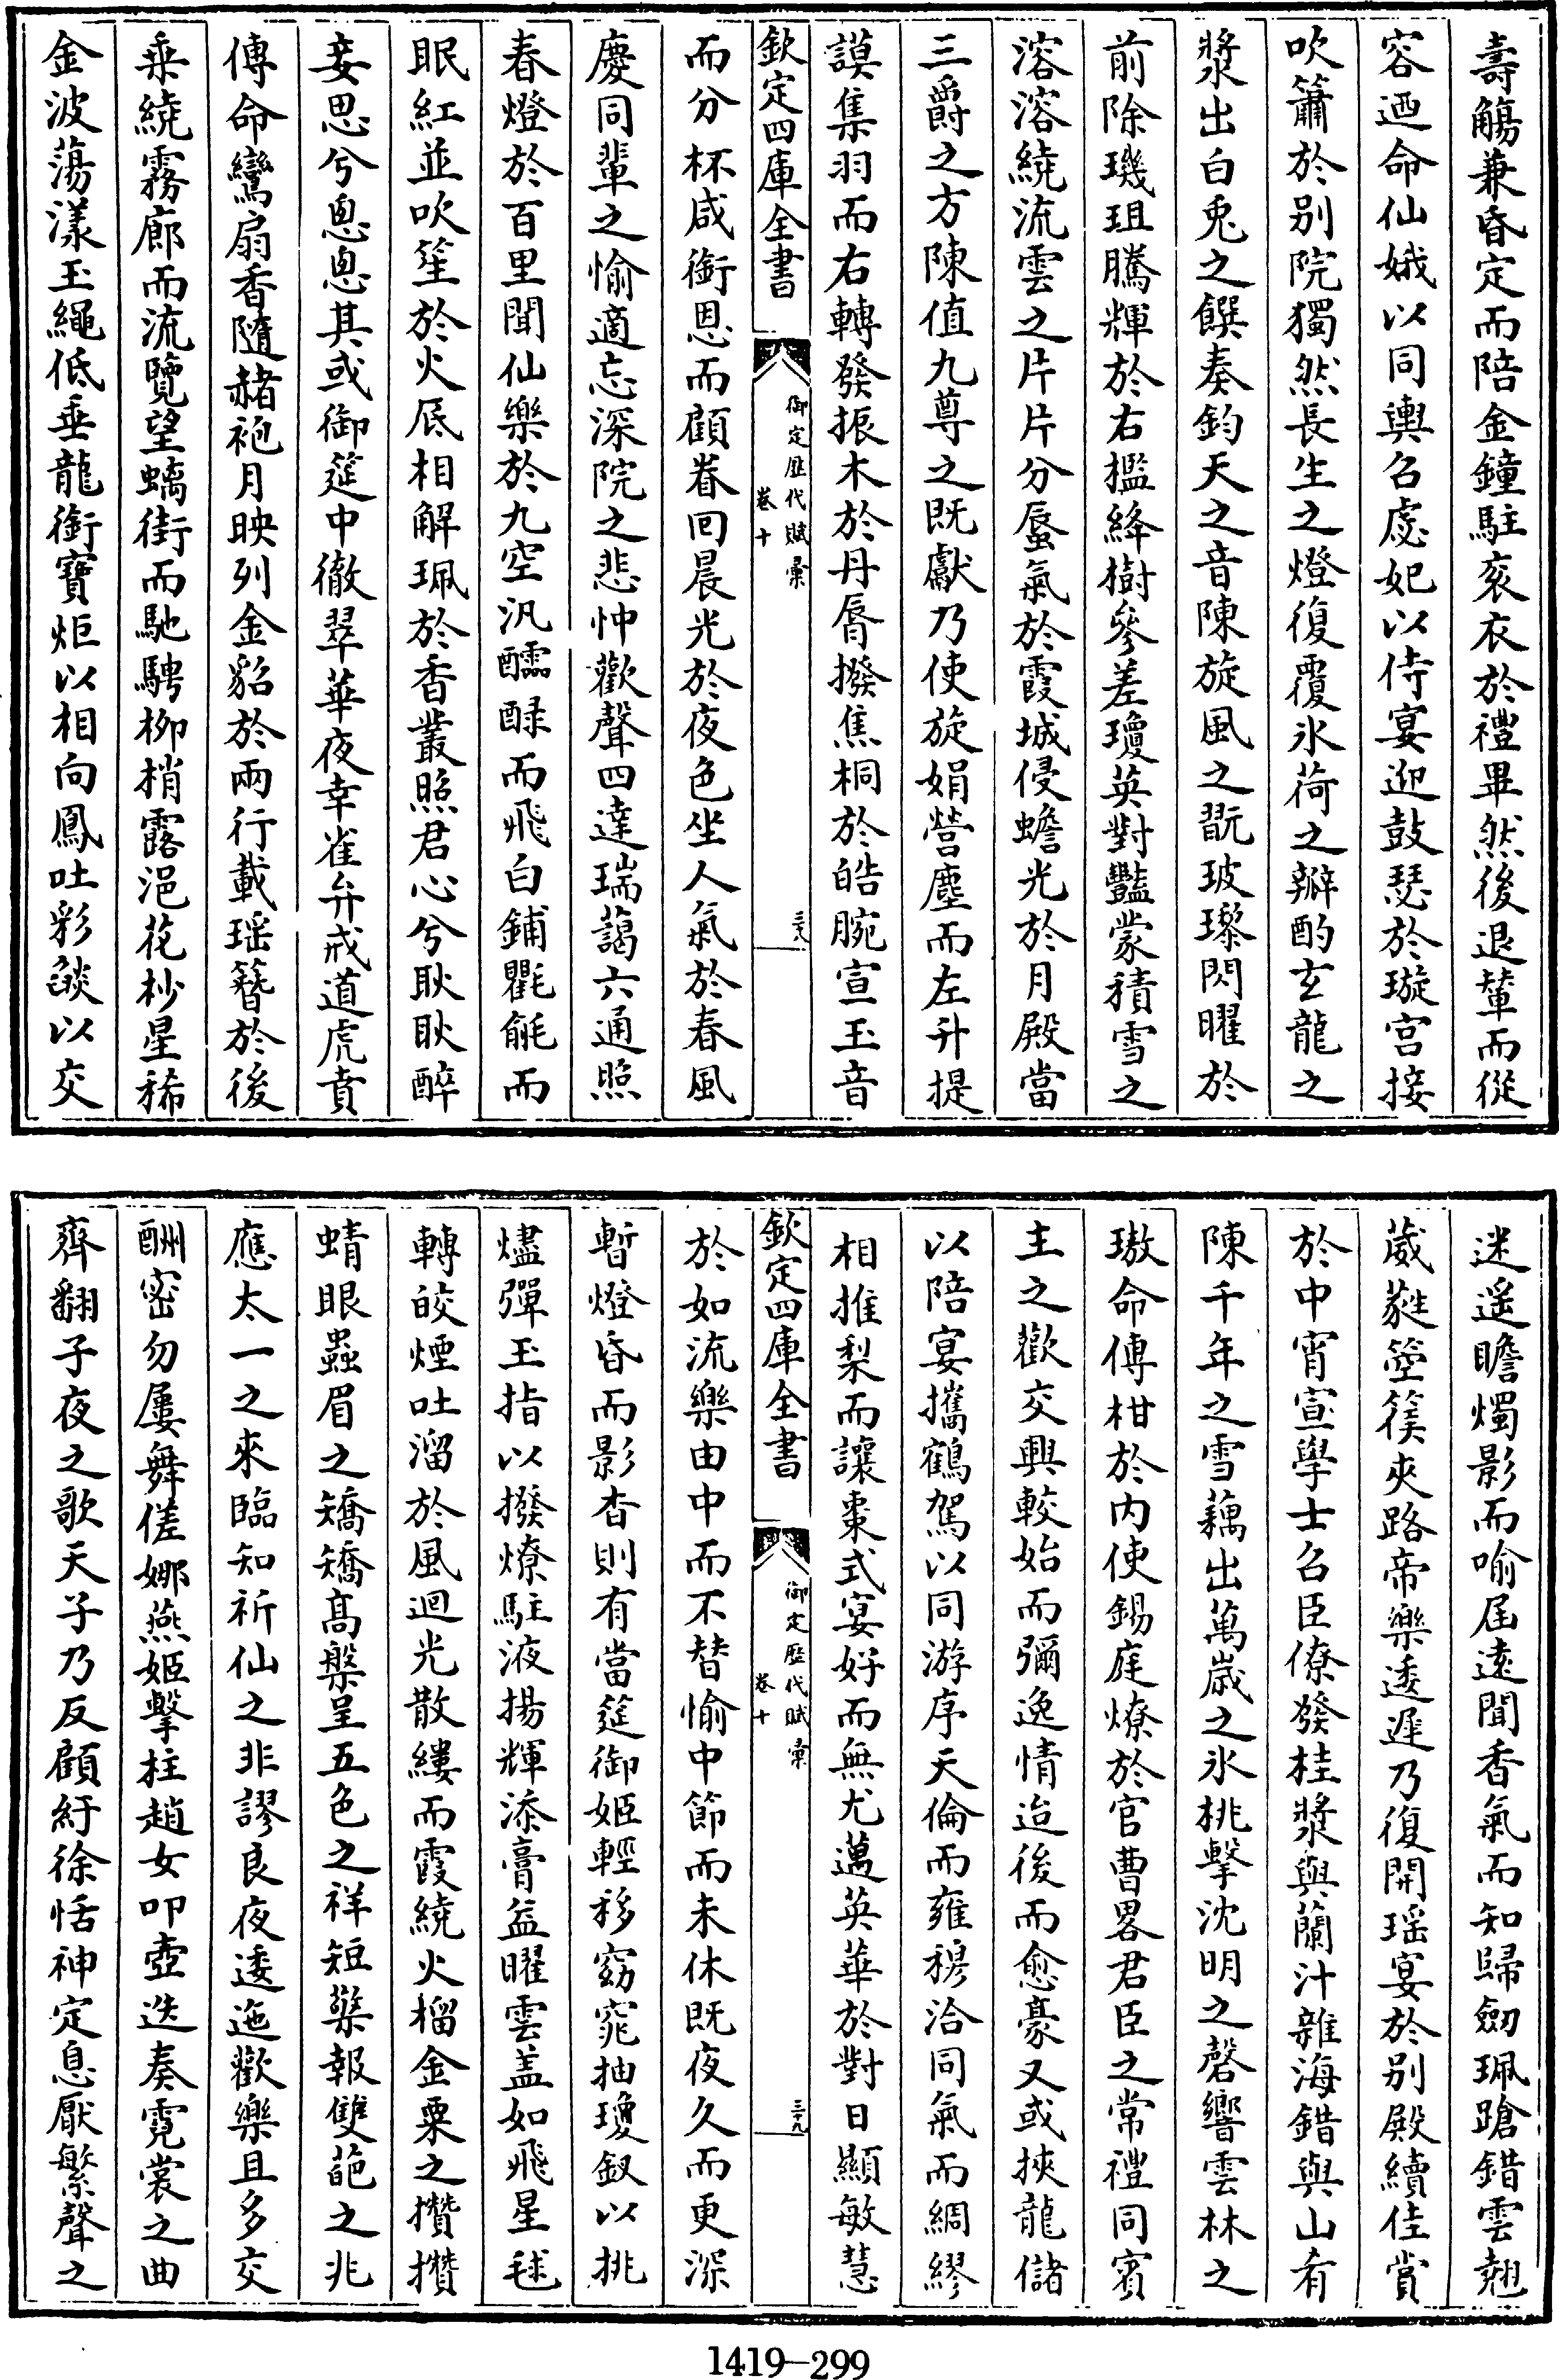 壽觴兼昏定而陪金鐘駐衮衣於禮畢然後退輦而從
容迺命仙娥以同輿召虙妃以侍宴迎鼓瑟於璇宫接
吹簫於别院獨然長生之燈復覆氷荷之瓣酌玄龍之
漿出白兎之饌奏鈞天之音陳旋風之翫玻瓈閃曜於
前除璣珇騰輝於右檻絳樹參差瓊英對豔蒙積雪之
溶溶繞流雲之片片分蜃氣於霞城侵蟾光於月殿當
三爵之方陳值九尊之既獻乃使旋娟營塵而左升提
謨集羽而右轉發振木於丹脣撥焦桐於皓腕宣玉音
欽定四庫全書
御定歴代賦彚
卷十
三八
而分杯咸銜恩而顧眷回晨光於夜色坐人氣於春風
慶同輩之愉適忘深院之悲忡歡聲四達瑞藹六通照
春燈於百里聞仙樂於九空汎醽醁而飛白鋪氍毹而
眠紅並吹笙於火底相解珮於香叢照君心兮耿耿醉
妾思兮悤悤其或御筵中徹翠華夜幸雀弁戒道虎賁
傳命鸞扇香隨赭袍月映列金貂於兩行載瑶簪於後
乗繞霧廊而流覽望螭街而馳騁栁梢露浥花杪星稀
金波蕩漾玉繩低垂龍銜寶炬以相向鳳吐彩燄以交
迷遥瞻燭影而喻屆遠聞香氣而知歸劒珮蹌錯雲翹
葳蕤箜篌夾路帝樂逶遲乃復開瑶宴於别殿續佳賞
於中宵宣學士召臣僚發桂漿與蘭汁雜海錯與山肴
陳千年之雪藕出萬歳之氷桃擊沈明之磬響雲林之
璈命傳柑於内使錫庭燎於官曹畧君臣之常禮同賓
主之歡交興較始而彌逸情迨後而愈豪又或挾龍儲
以陪宴攜鶴駕以同游序天倫而雍穆洽同氣而綢繆
相推梨而讓棗式宴好而無尤邁英華於對日顯敏慧
欽定四庫全書
御定歴代賦彚
卷十
三十九
於如流樂由中而不替愉中節而未休既夜久而更深
暫燈昏而影杳則有當筵御姬輕移窈窕抽瓊釵以挑
燼彈玉指以撥燎駐液揚輝添膏益曜雲盖如飛星毬
轉皎煙吐溜於風迴光散縷而霞繞火榴金粟之攢攢
蜻眼蟲眉之矯矯高檠呈五色之祥短檠報雙葩之兆
應太一之來臨知祈仙之非謬良夜逶迤歡樂且多交
酬密勿屢舞傞娜燕姬擊柱趙女叩壺迭奏霓裳之曲
齊翻子夜之歌天子乃反顧紆徐恬神定息厭繁聲之
1419-299